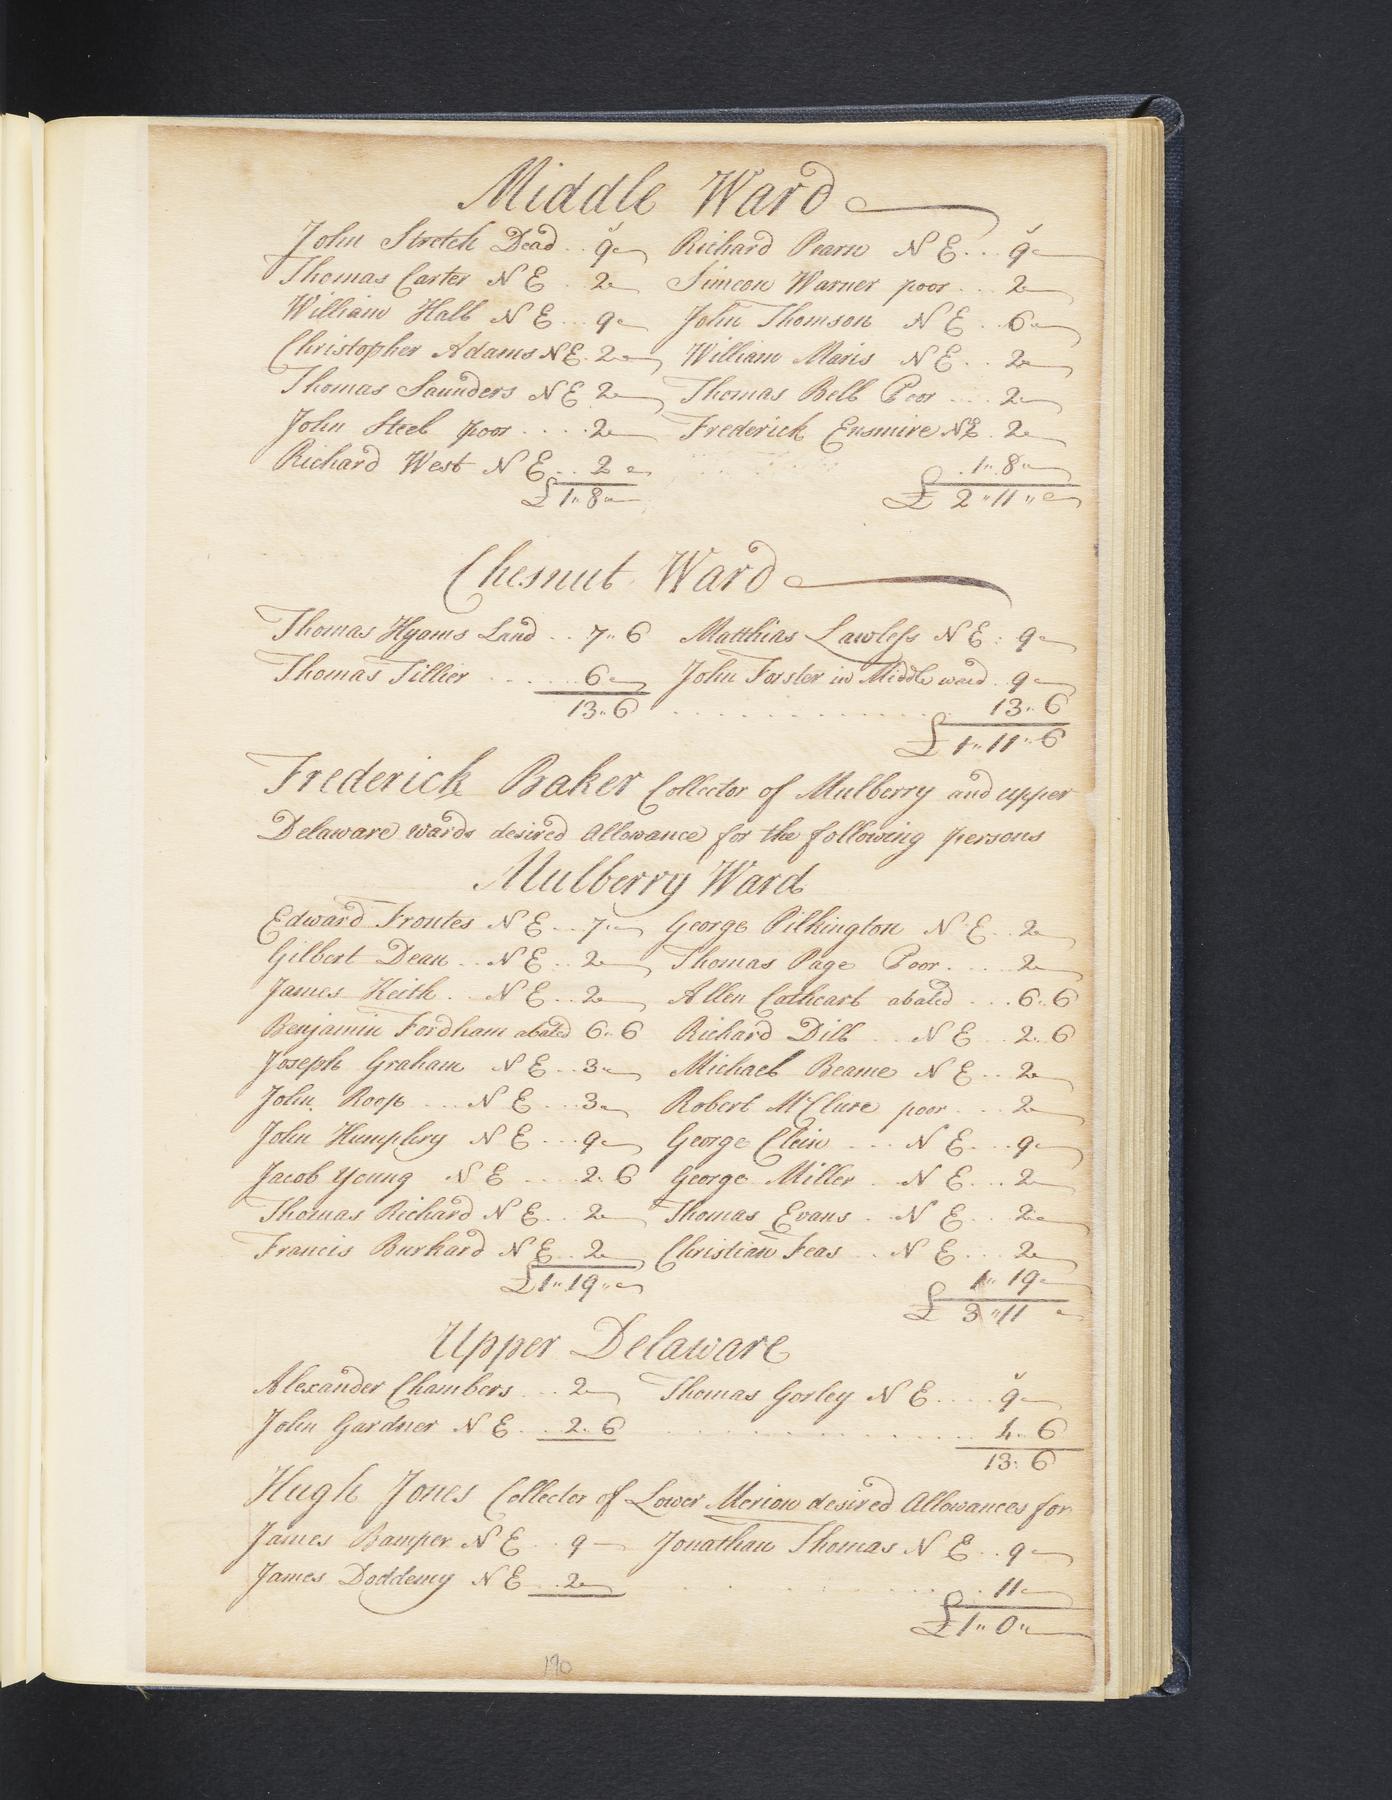 Middle Ward
John Stretch Dead .. 9 Richard Pearn N E ... 9
Thomas Carter N E .. 2 Simeon Warner poor ... 2
William Hall N E ... 9 John Thomson N E .. 6
Christopher Adams N E . 2 William Maris N E .. 2
Thomas Saunders N E 2 Thomas Bell Poor .... 2
John Steel poor .... 2 Frederick Ensmire N E . 2
Richard West N E .. 2 1" 8
£ 1" 8 £ 2 " 11 "
Chesnut Ward
Thomas Hyams Land .. 7" 6 Matthias Lawless N E : 9
Thomas Tillier ..... 6 John Forster in Middle ward . 9
13" 6 ............ 13" 6
£ 1" 11" 6
Frederick Baker Collector of Mulberry and upper
Delaware wards desired Allowance for the following persons
Mulberry Ward
Edward Froutes N E .. 7 George Pilkington N E .. 2
Gilbert Dean .. N E .. 2 Thomas Page Poor .... 2
James Keith .. N E .. 2 Allen Cathcart abated ... 6" 6
Benjamin Fordham abated 6" 6 Richard Dill .. N E .. 2" 6
Joseph Graham N E .. 3 Michael Beame N E .. 2
John Roop ... N E ... 3 Robert McClure poor ... 2
John Humphry N E ... 9 George Clein ... N E ... 9
Jacob Young N E .... 2" 6 George Miller .. N E ... 2
Thomas Richard N E .. 2 Thomas Evans .. N E ... 2
Francis Burkard N E .. 2 Christian Feas .. N E ... 2
£ 1" 19" 1" 19
£ 3 " 11
Upper Delaware
Alexander Chambers ... 2 Thomas Gorley N E .... 9
John Gardner N E .. 2" 6 ............ 4" 6
13" 6
Hugh Jones Collector of Lower Merion desired Allowances for
James Bamper N E .. 9 Jonathan Thomas N E .. 9
James Doddemy N E .. 2 .. 11
£ 1" 0"
190